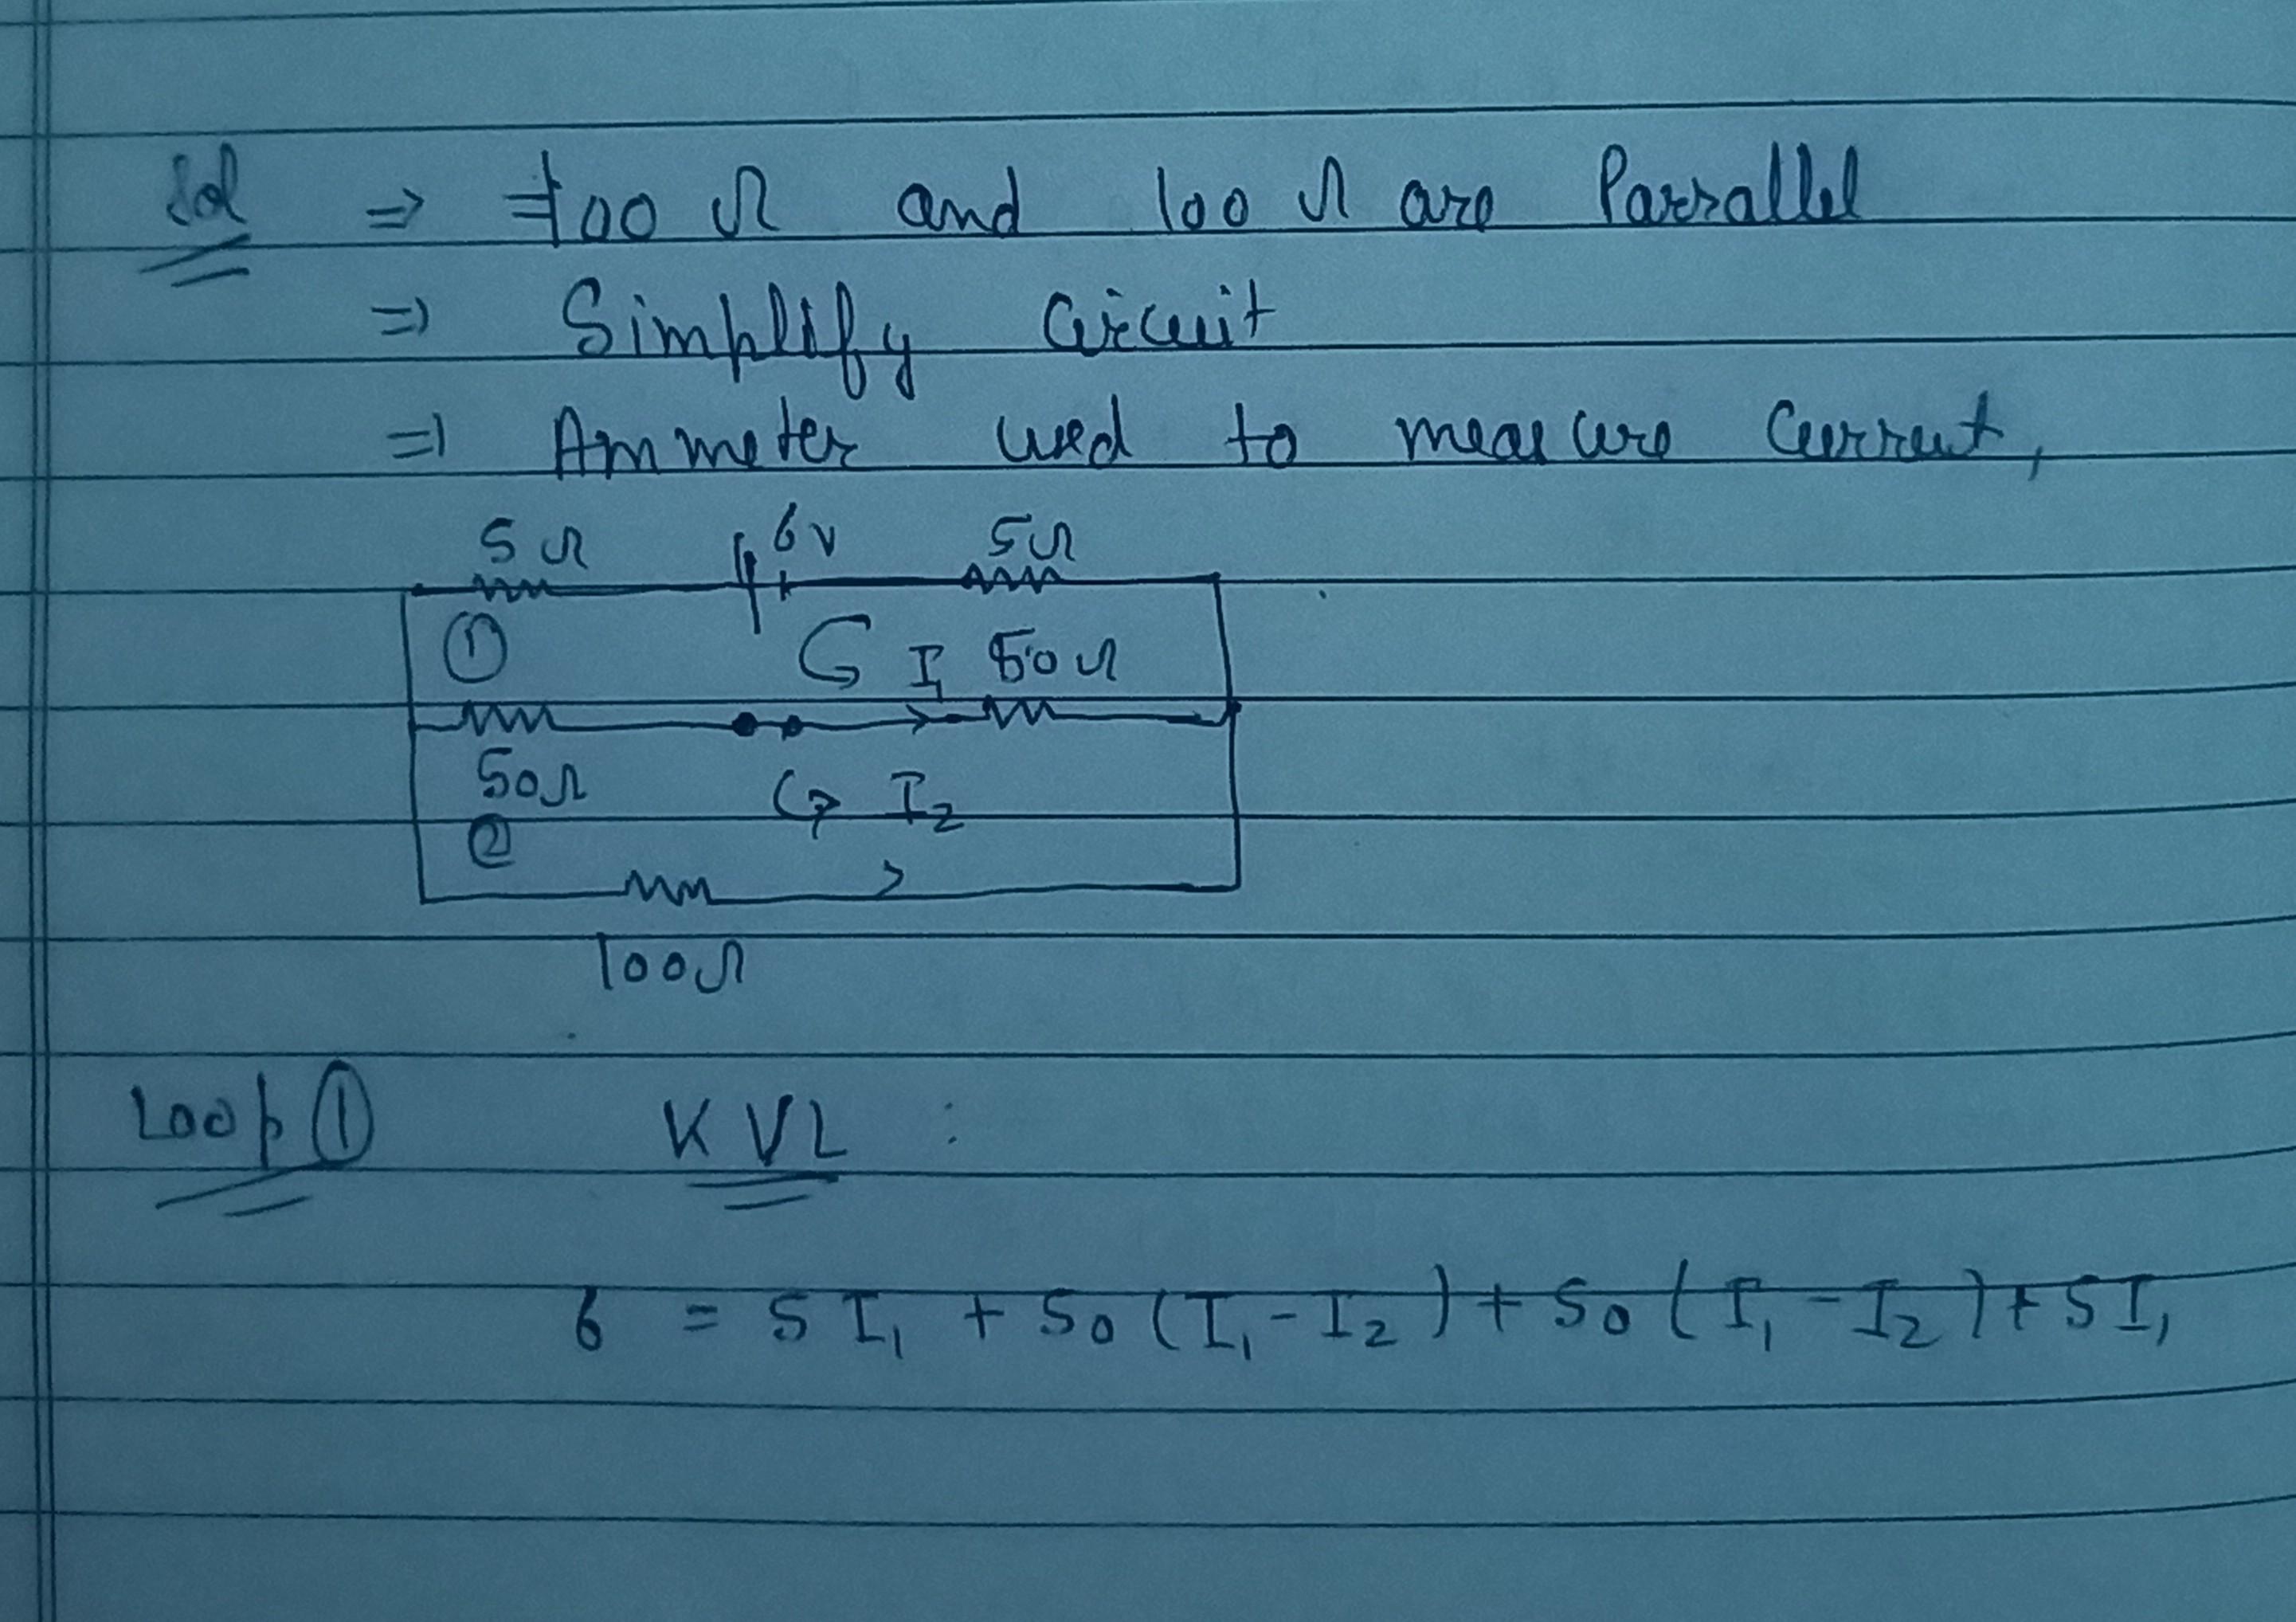 Sol ⇒ 100 Ω and 100 Ω are Parrallel
⇒ Simplify Circuit
⇒ Ammeter used to measure Current,
5 Ω 6 V 5 Ω
① I₁ 50 Ω
50 Ω I₂
②
100 Ω
Loop ① KVL :
6 = 5 I₁ + 50 (I₁ - I₂) + 50 (I₁ - I₂) + 5 I₁